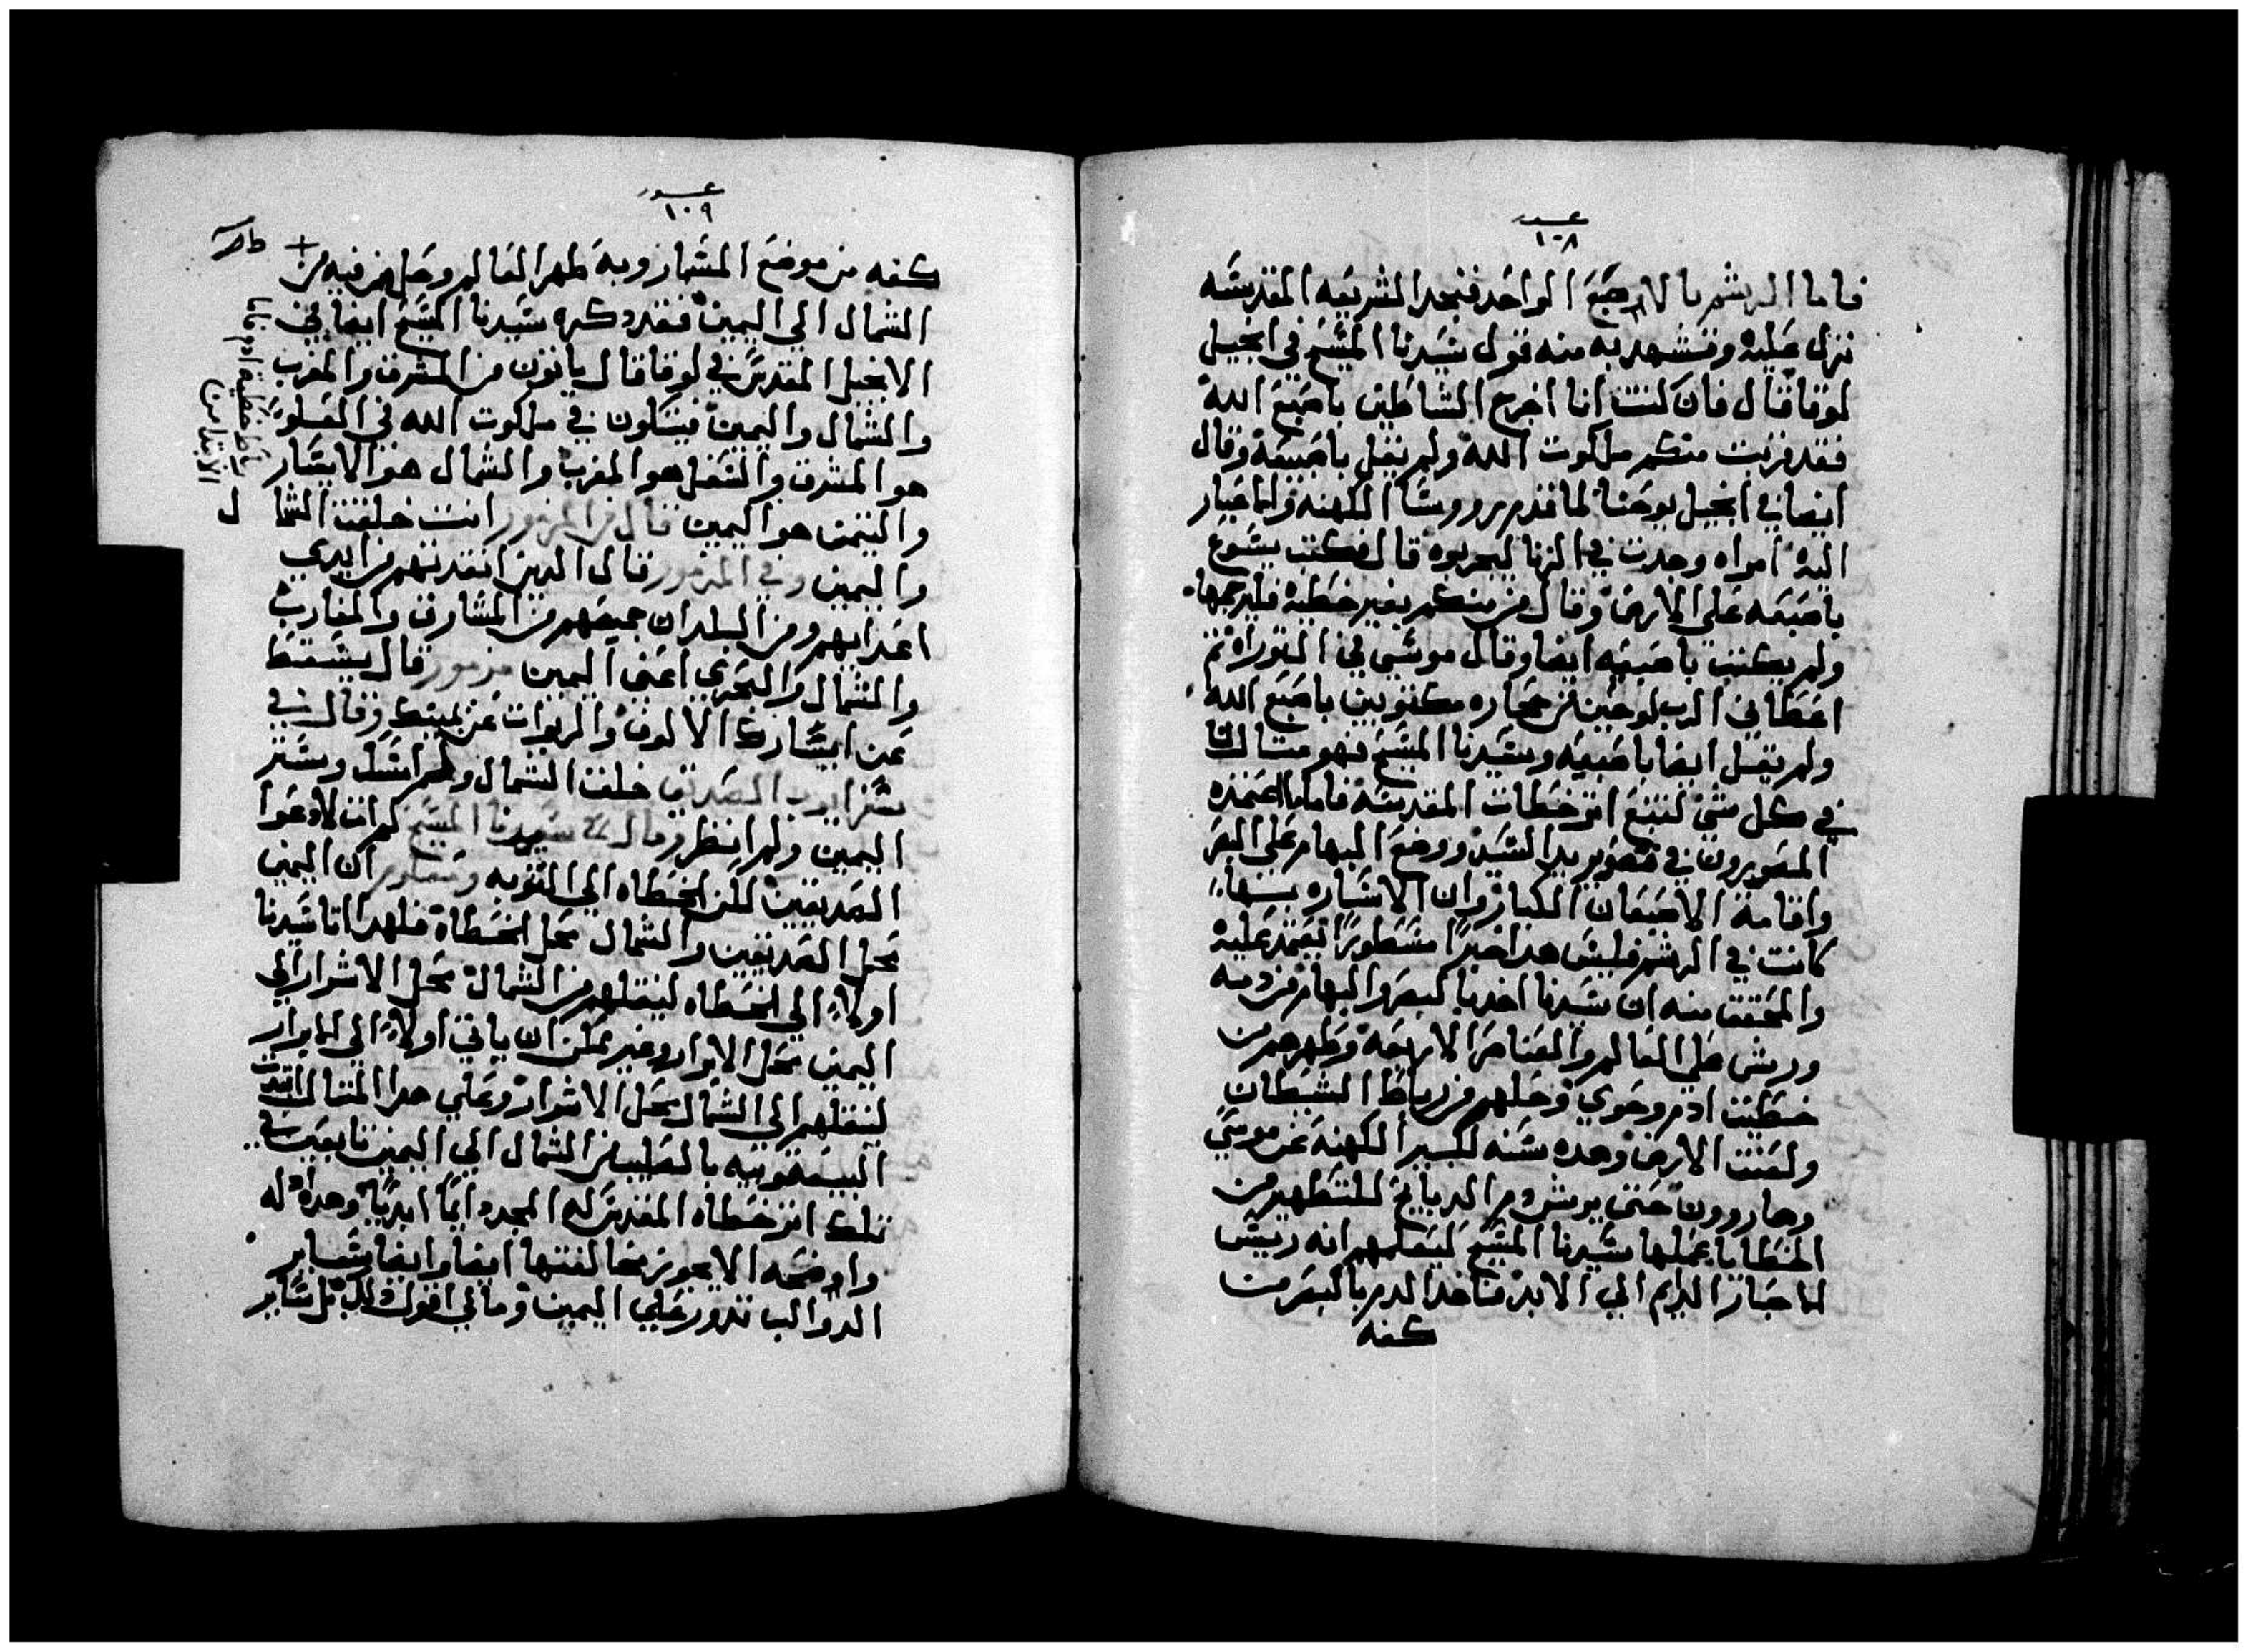 ١٠٨
فاما الرشم بالاصبع الواحد فنجد الشريعه المقدسه
نزل عليه ونستشهد به منه قول سيدنا المسيح في انجيل
لوقا قال فان كنت انا اخرج الشياطين باصبع الله
فقد قربت منكم ملكوت الله ولم يقل باصبعه وقال
ايضا في انجيل يوحنا لما قدم روسا الكهنه والاحبار
اليه امراه وجدت في الزنا ليجربوه قال فكتب يسوع
باصبعه علي الارض وقال من منكم بغير خطيه فليرجمها
ولم يكتب باصبعيه ايضا وقال موسي في التوراه ثم
اعطاني الرب لوحين من حجاره مكتوبين باصبع الله
ولم يقل ايضا باصبعيه وسيدنا المسيح فهو مثالنا
في كل شي لنتبع اثر خطاته المقدسه فاما ما اعتمده
المصورون في تصوير يد السيد ووضع البهام علي البنصر
واقامة الاصبعان الكبار وان الاشاره بينهما
كانت في الرشم فليس هذا خبرا مسطورا يعتمد عليه
والمحقق منه ان سيدنا اخد بالبنصر والبهام من دمه
ورش علي العالم والعناصر الاربعه وطهرهم من
خطيت ادم وحوي وخلهم من رباط الشيطان
ولعنت الارض وهده سنه لكبير الكهنه عن موسي
وهارون حتي يرش دم الدبايح للتطهير من
الخطايا عملها سيدنا المسيح ليعلمهم انه رييس
الاحبار الدايم الي الابد فاخد الدم بالبنصر من
كفه
١٠٩
كفه من موضع المسمار وبه طهر العالم وجعل من فيه من
الشمال الي اليمين فقد دكره سيدنا المسيح ايضا في
الانجيل المقدس في لوقا قال ياتون من المشرق والمغرب
والشمال واليمين فيتكون في ملكوت الله في العلو
هو المشرق والسفل هو المغرب والشمال هو الايسار
والتيمن هو اليمين قال في المزمور انت خلقت الشمال
واليمين وفي المزمور قال الدين انقدتهم من ايدي
اعدايهم ومن البلدان جمعهم من المشارق والمغارب
والشمال والبحري اعني اليمين مزمور قال يسقط
عن ايسارك الالوف والربوات عن يمينك وقال في
سفر ايوب الصديق خلفت الشمال ولم امسك وستر
اليمين ولم انظر وقال سيدنا المسيح لم ات لادعوا
الصديقين لكن الخطاه الي التوبه ومعلوم ان اليمين
محل الصديقين والشمال محل الخطاه فلهدا اتا سيدنا
اولا الي الخطاه لينقلهم من الشمال محل الاشرار الي
اليمين محل الابرار وغير ممكن ان ياتي اولا الي الابرار
لينقلهم الي الشمال محل الاشرار وعلي هدا المثال اقتدت
اليعقوبيه بالصليب من الشمال الي اليمين تابعين في
تلك اثر خطاه المقدس له المجد دايما ابديا وهدا
واوضحه الا يجوز مخالفتها ايضا وايضا وساير
الدواليب تدور علي اليمين ومالي اقول دلك بل ساير